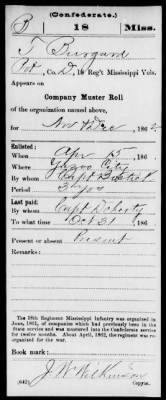 (Confederate.)
B 18 Miss.
T Burgard
Pvt, Co. D, 18 Reg't Mississippi Vols.
Appears on
Company Muster Roll
of the organization named above,
for Nov & Dec, 186
Enlisted:
When Apr 25, 186
Where Yazoo City
By whom Capt
Period 3 yrs
Last paid:
By whom Capt Doherty
To what time Oct 31, 186
Present or absent Present
Remarks:
The 18th Regiment Mississippi Infantry was organized in
June, 1861, of companies which had previously been in the
State service and was mustered into the Confederate service
for twelve months. About April, 1862, the regiment was
re-organized.
Book mark:
J. W. Wilkinson
(642)